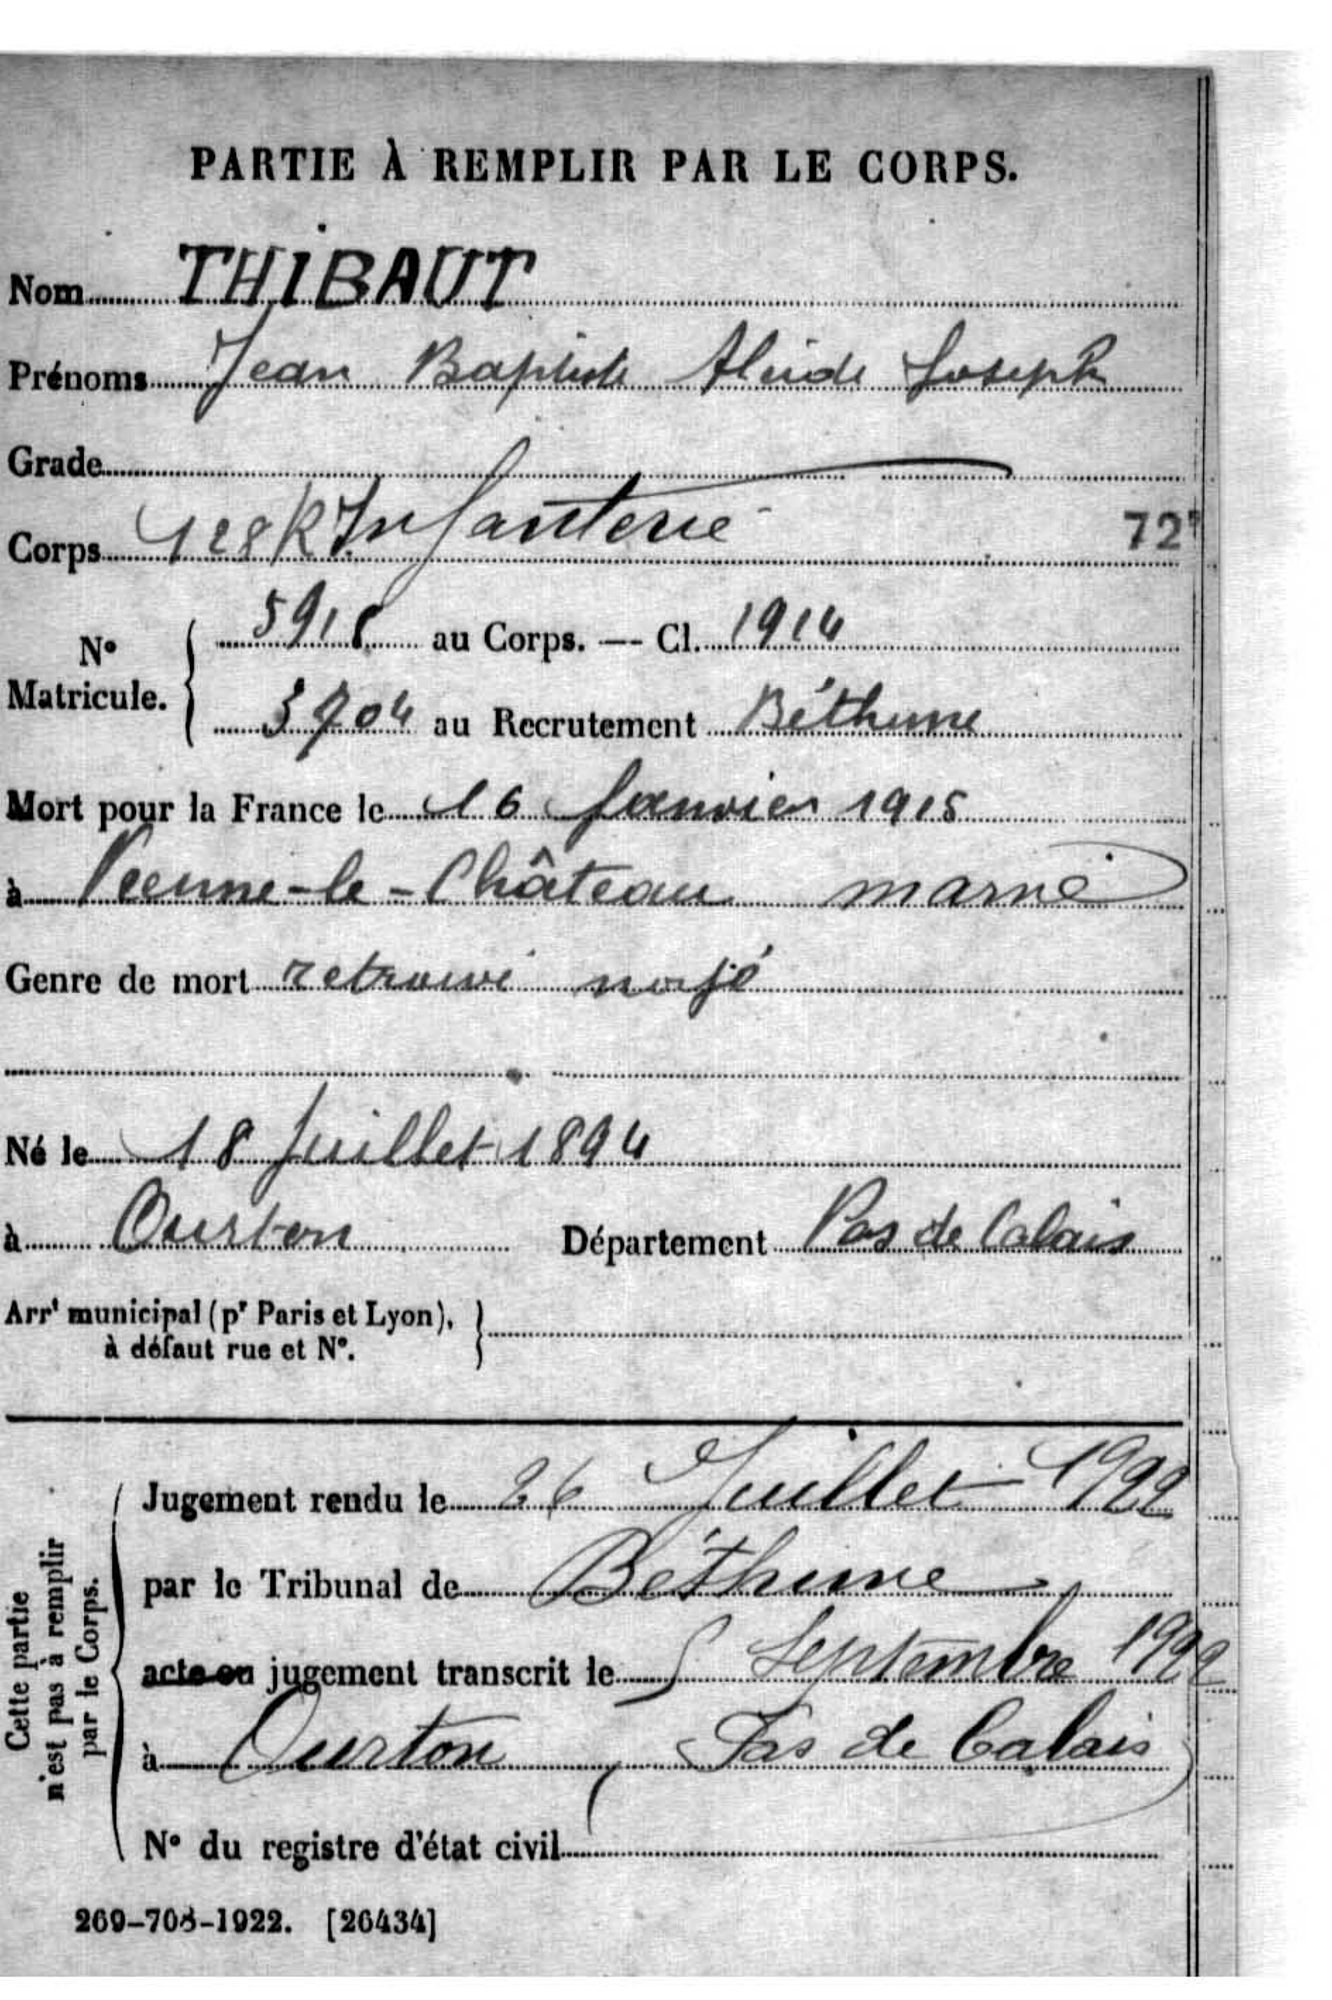 PARTIE À REMPLIR PAR LE CORPS.
Nom THIBAUT
Prénoms Jean Baptiste Alcide Joseph
Grade
Corps 128 R. Infanterie 72
Nº Matricule. 5918 au Corps. — Cl. 1914
3704 au Recrutement Béthune
Mort pour la France le 16 Janvier 1915
à Vienne-le-Château marne
Genre de mort retrouvé noyé
Né le 18 Juillet 1894
à Ourton Département Pas de Calais
Arrt municipal (pr Paris et Lyon),
à défaut rue et Nº.
Cette partie
n'est pas à remplir
par le Corps.
Jugement rendu le 26 Juillet 1922
par le Tribunal de Béthune
acte ou jugement transcrit le 5 Septembre 1922
à Ourton (Pas de Calais)
Nº du registre d'état civil
269-708-1922. [26434]